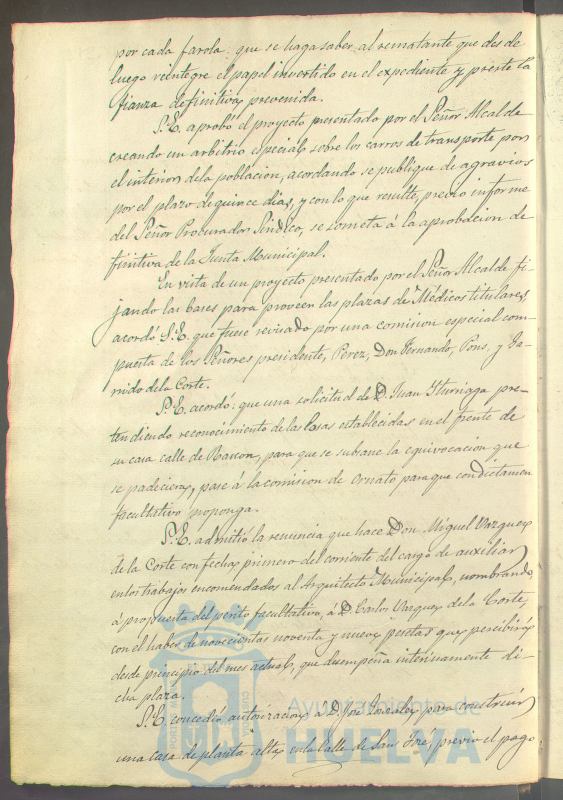 por cada farola: que se haga saber al rematante que desde
luego reintegre el papel invertido en el expediente y preste la
fianza definitiva prevenida.
S.E. aprobó el proyecto presentado por el Señor Alcalde
creando un arbitrio especial sobre los carros de transporte por
el interior de la poblacion, acordando se publique de agravios
por el plazo de quince dias, y con lo que resulte, previo informe
del Señor Procurador Sindico, se someta á la aprobacion de-
finitiva de la Junta Municipal.
En vista de un proyecto presentado por el Señor Alcalde fi-
jando las bases para proveer las plazas de Médicos titulares,
acordó S.E. que fuese revisado por una comision especial com-
puesta de los Señores presidente, Perez, Don Fernando, Pons, y Ga-
rrido de la Corte.
S.E. acordó: que una solicitud de D. Juan Iturriaga pre-
tendiendo reconocimiento de las losas establecidas en el frente de
su casa calle de Rascon, para que se subsane la equivocacion que
se padeciera, pase á la comision de Ornato para que con dictamen
facultativo proponga.
S.E. admitió la renuncia que hace Don Miguel Vazquez
de la Corte con fecha primero del corriente del cargo de auxiliar
en los trabajos encomendados al Arquitecto Municipal, nombrando
á propuesta del perito facultativo, á D. Carlos Vazquez de la Corte,
con el haber de novecientas noventa y nueve pesetas que percibirá
desde principio del mes actual, que desempeña interinamente di-
cha plaza.
S.E. concedió autorizacion á D. José Gonzalez para construir
una casa de planta alta en la calle de San José, previo el pago
Ayuntamiento de
HUELVA